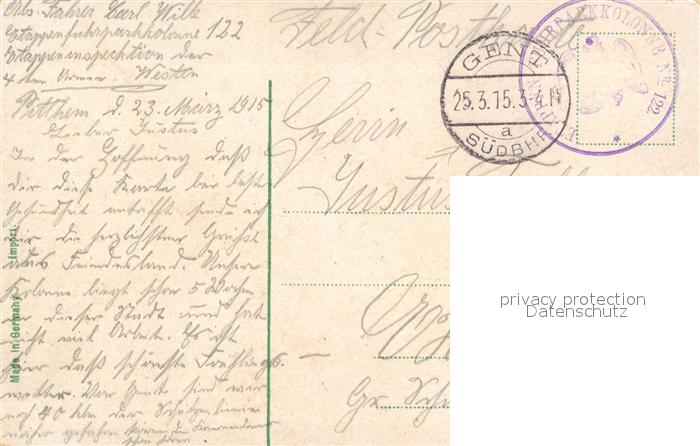 Abs. Fahrer Carl Wille
Etappenfuhrparkkolonne 122
Etappeninspecktion der
4ten Armee. Westen
Feld-Postkarte
Pitthem d. 23. März 1915
Lieber Justus
In der Hoffnung daß
dir diese Karte bei bester
Gesundheit antrifft sende ich
dir die herzlichsten Grüße
aus Feindesland. Unsere
Kolonne liegt schon 5 Wochen
in dieser Stadt und hat
nicht viel Arbeit. Es ist
hier daß schönste Frühlings-
wetter. Von Gent sind wir
noch 40 klm der Schützenlinie
näher gefahren
Herrn
Justus
Gr.
GENT
25.3.15.3-4.N
a
SÜDBHF
FUHRPARKKOLONNE NR. 122
*
Made in Germany Import.
privacy protection
Datenschutz